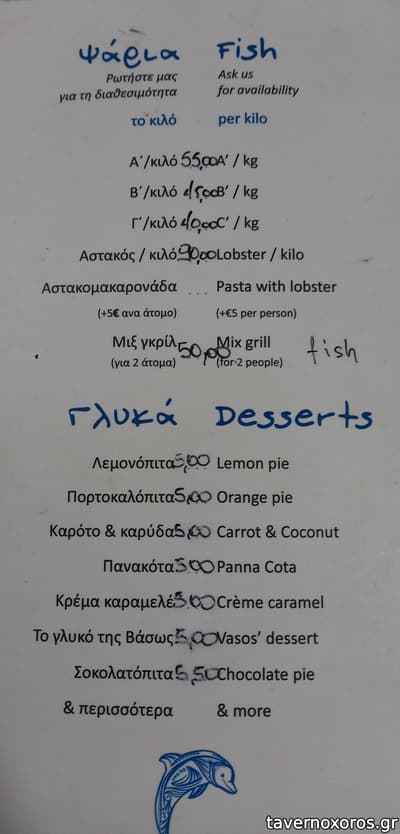 Ψάρια Fish
Ρωτήστε μας Ask us
για τη διαθεσιμότητα for availability
το κιλό per kilo
Α΄/κιλό 55,00 A' / kg
Β΄/κιλό 45,00 B' / kg
Γ΄/κιλό 40,00 C' / kg
Αστακός / κιλό 90,00 Lobster / kilo
Αστακομακαρονάδα ... Pasta with lobster
(+5€ ανα άτομο) (+€5 per person)
Μιξ γκρίλ 50,00 Mix grill fish
(για 2 άτομα) (for 2 people)
Γλυκά Desserts
Λεμονόπιτα 5,00 Lemon pie
Πορτοκαλόπιτα 5,00 Orange pie
Καρότο & καρύδα 5,00 Carrot & Coconut
Πανακότα 5,00 Panna Cota
Κρέμα καραμελέ 5,00 Crème caramel
Το γλυκό της Βάσως 5,00 Vasos' dessert
Σοκολατόπιτα 5,50 Chocolate pie
& περισσότερα & more
tavernoxoros.gr